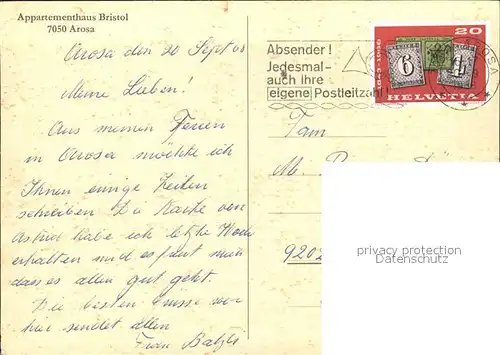 Appartementhaus Bristol
7050 Arosa
Arosa den 20 Sept 68
Meine Lieben!
Aus meinen Ferien
in Arosa möchte ich
Ihnen einige Zeilen
schreiben Die Karte von
Astrid habe ich letzte Woche
erhalten und es freut mich
dass es allen gut geht.
Die besten Grüsse von
hier sendet allen
Frau
Absender!
Jedesmal
auch Ihre
eigene Postleitzahl!
20
6
4
HELVETIA
Fam
M.
9202
privacy protection
Datenschutz